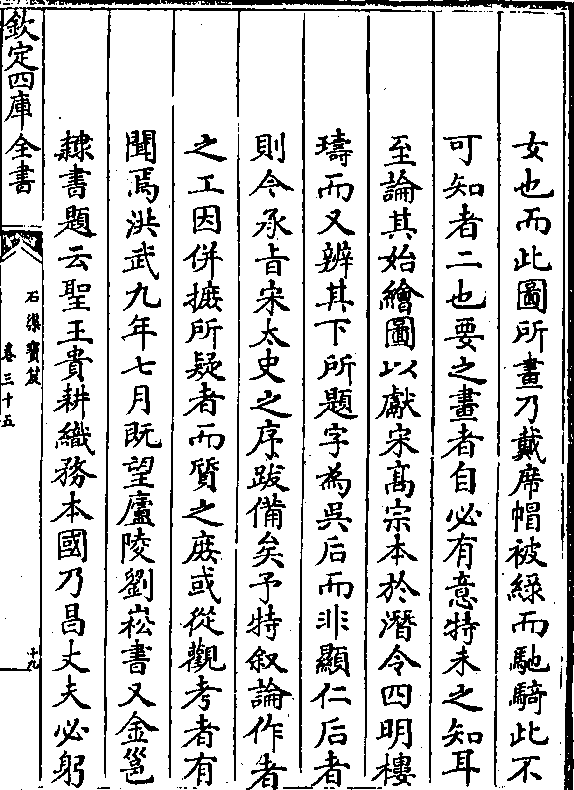 女也而此圖所畫乃戴席帽被綠而馳騎此不
可知者二也要之畫者自必有意特未之知耳
至論其始繪圖以獻宋髙宗本於潛令四明樓
璹而又辨其下所題字為吳后而非顯仁后者
則今承㫖宋太史之序跋備矣予特叙論作者
之工因併摭所疑者而質之庻或從觀考者有
聞焉洪武九年七月既望廬陵劉崧書又金邕
隸書題云聖王貴耕織務本國乃昌丈夫必躬
欽定四庫全書
石渠寳笈
卷三十五
十九